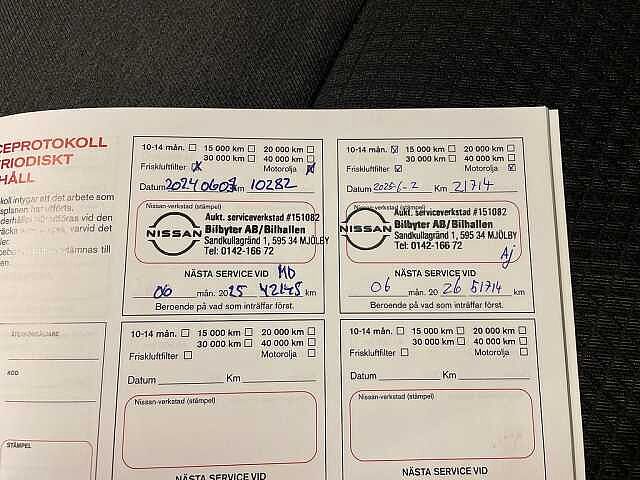 CEPROTOKOLL
RIODISKT
HÅLL
koll intygar att det arbete som
10-14 mån. 15 000 km 20 000 km
30 000 km 40 000 km
Friskluftfilter Motorolja
Datum Km 10282
Nissan-verkstad (stämpel)
Aukt. serviceverkstad #151082
NISSAN
Bilbyter AB/Bilhallen
Sandkullagränd 1, 595 34 MJÖLBY
Tel: 0142-166 72
NÄSTA SERVICE VID MD
06 mån. 2025 42145 km
Beroende på vad som inträffar först.
10-14 mån. 15 000 km 20 000 km
30 000 km 40 000 km
Friskluftfilter Motorolja
Datum 2025-6-2 Km 21714
Nissan-verkstad
Aukt. serviceverkstad #151082
NISSAN
Bilbyter AB/Bilhallen
Sandkullagränd 1, 595 34 MJÖLBY
Tel: 0142-166 72
Aj
NÄSTA SERVICE VID
06 mån. 2026 51714 km
Beroende på vad som inträffar först.
KOD
STÄMPEL
10-14 mån. 15 000 km 20 000 km
30 000 km 40 000 km
Friskluftfilter Motorolja
Datum Km
Nissan-verkstad (stämpel)
NÄSTA SERVICE VID
10-14 mån. 15 000 km 20 000 km
30 000 km 40 000 km
Friskluftfilter Motorolja
Datum Km
Nissan-verkstad (stämpel)
NÄSTA SERVICE VID